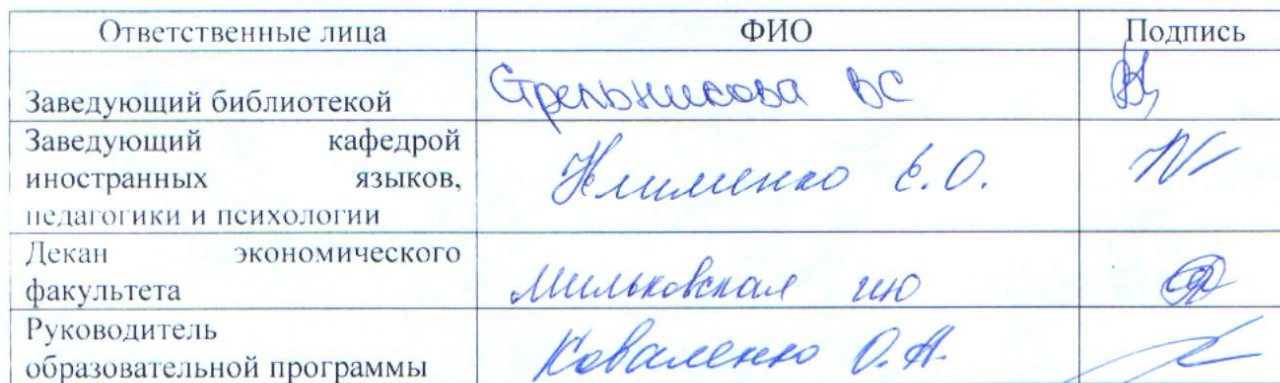 Ответственные лица ФИО Подпись
Заведующий библиотекой Стрельникова ВС
Заведующий кафедрой
иностранных языков,
педагогики и психологии Клименко Е.О.
Декан экономического
факультета Мильковская ИЮ
Руководитель
образовательной программы Коваленко О.А.